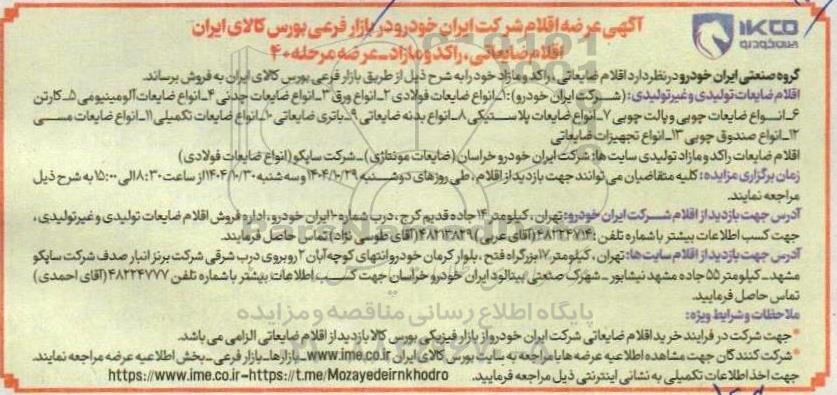 IKCO
ایران خودرو
آگهی عرضه اقلام شرکت ایران خودرو در بازار فرعی بورس کالای ایران
اقلام ضایعاتی، راکد و مازاد - عرضه مرحله ۴۰
گروه صنعتی ایران خودرو در نظر دارد اقلام ضایعاتی، راکد و مازاد خود را به شرح ذیل از طریق بازار فرعی بورس کالای ایران به فروش برساند.
اقلام ضایعات تولیدی و غیرتولیدی: (شرکت ایران خودرو): ۱-انواع ضایعات فولادی ۲-انواع ورق ۳-انواع ضایعات چدنی ۴-انواع ضایعات آلومینیومی ۵-کارتن
۶-انواع ضایعات چوبی و پالت چوبی ۷-انواع ضایعات پلاستیکی ۸-انواع بدنه ضایعاتی ۹-باتری ضایعاتی ۱۰-انواع ضایعات تکمیلی ۱۱-انواع ضایعات مسی
۱۲-انواع صندوق چوبی ۱۳-انواع تجهیزات ضایعاتی
اقلام ضایعات راکد و مازاد تولیدی سایت ها: شرکت ایران خودرو خراسان (ضایعات مونتاژی) - شرکت ساپکو (انواع ضایعات فولادی)
زمان برگزاری مزایده: کلیه متقاضیان می توانند جهت بازدید از اقلام، طی روزهای دوشنبه ۱۴۰۴/۱۰/۲۹ و سه شنبه ۱۴۰۴/۱۰/۳۰ از ساعت ۸:۳۰ الی ۱۵:۰۰ به شرح ذیل
مراجعه نمایند.
آدرس جهت بازدید از اقلام شرکت ایران خودرو: تهران، کیلومتر ۱۴ جاده قدیم کرج، درب شماره ۱۰ ایران خودرو، اداره فروش اقلام ضایعات تولیدی و غیرتولیدی،
جهت کسب اطلاعات بیشتر با شماره تلفن: ۴۸۲۲۴۷۱۴ (آقای عربی) ۴۸۲۱۳۸۲۹ (آقای طوسی نژاد) تماس حاصل فرمایند.
آدرس جهت بازدید از اقلام سایت ها: تهران، کیلومتر ۱۷ بزرگراه فتح، بلوار کرمان خودرو انتهای کوچه آبان ۲ روبروی درب شرقی شرکت برنز انبار صدف شرکت ساپکو
مشهد - کیلومتر ۵۵ جاده مشهد نیشابور - شهرک صنعتی بینالود ایران خودرو خراسان جهت کسب اطلاعات بیشتر با شماره تلفن ۴۸۲۲۴۷۷۷ (آقای احمدی)
تماس حاصل فرمایید.
پایگاه اطلاع رسانی مناقصه و مزایده
ملاحظات و شرایط ویژه:
*جهت شرکت در فرایند خرید اقلام ضایعاتی شرکت ایران خودرو از بازار فیزیکی بورس کالا بازدید از اقلام ضایعاتی الزامی می باشد.
*شرکت کنندگان جهت مشاهده اطلاعیه عرضه ها با مراجعه به سایت بورس کالای ایران www.ime.co.ir - بازارها - بازار فرعی - بخش اطلاعیه عرضه مراجعه نمایند.
جهت اخذ اطلاعات تکمیلی به نشانی اینترنتی ذیل مراجعه فرمایید. https://www.ime.co.ir-https://t.me/Mozayedeirnkhodro